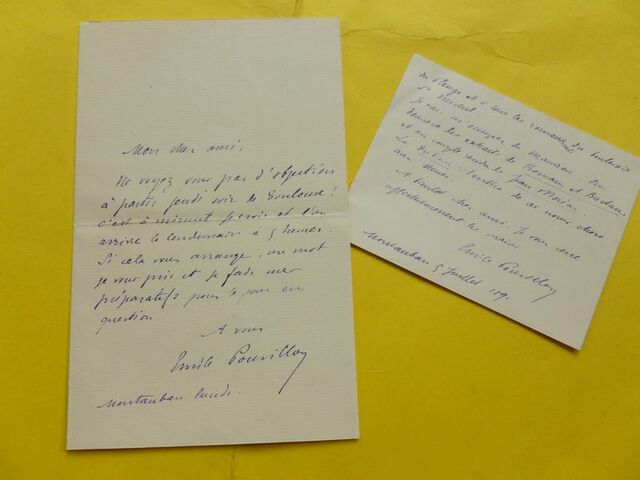 Mon cher ami,
Ne voyez vous pas d'objection
à partir jeudi soir de Toulouse?
c'est à minuit je crois et l'on
arrive le lendemain à 5 heures.
Si cela vous arrange, un mot
je vous prie et je fais mes
préparatifs pour le jour en
question
A vous
Emile Pouvillon
Montauban lundi.
et à tous les romanciers du boulevard
St Michel.
Je vais m'occuper de
donnera des extraits de Romain et Barbara
et un compte rendu de Jean
La de ce
A bientôt cher ami. Je vous serre
affectueusement les mains
Emile Pouvillon
Montauban 5 Juillet 189